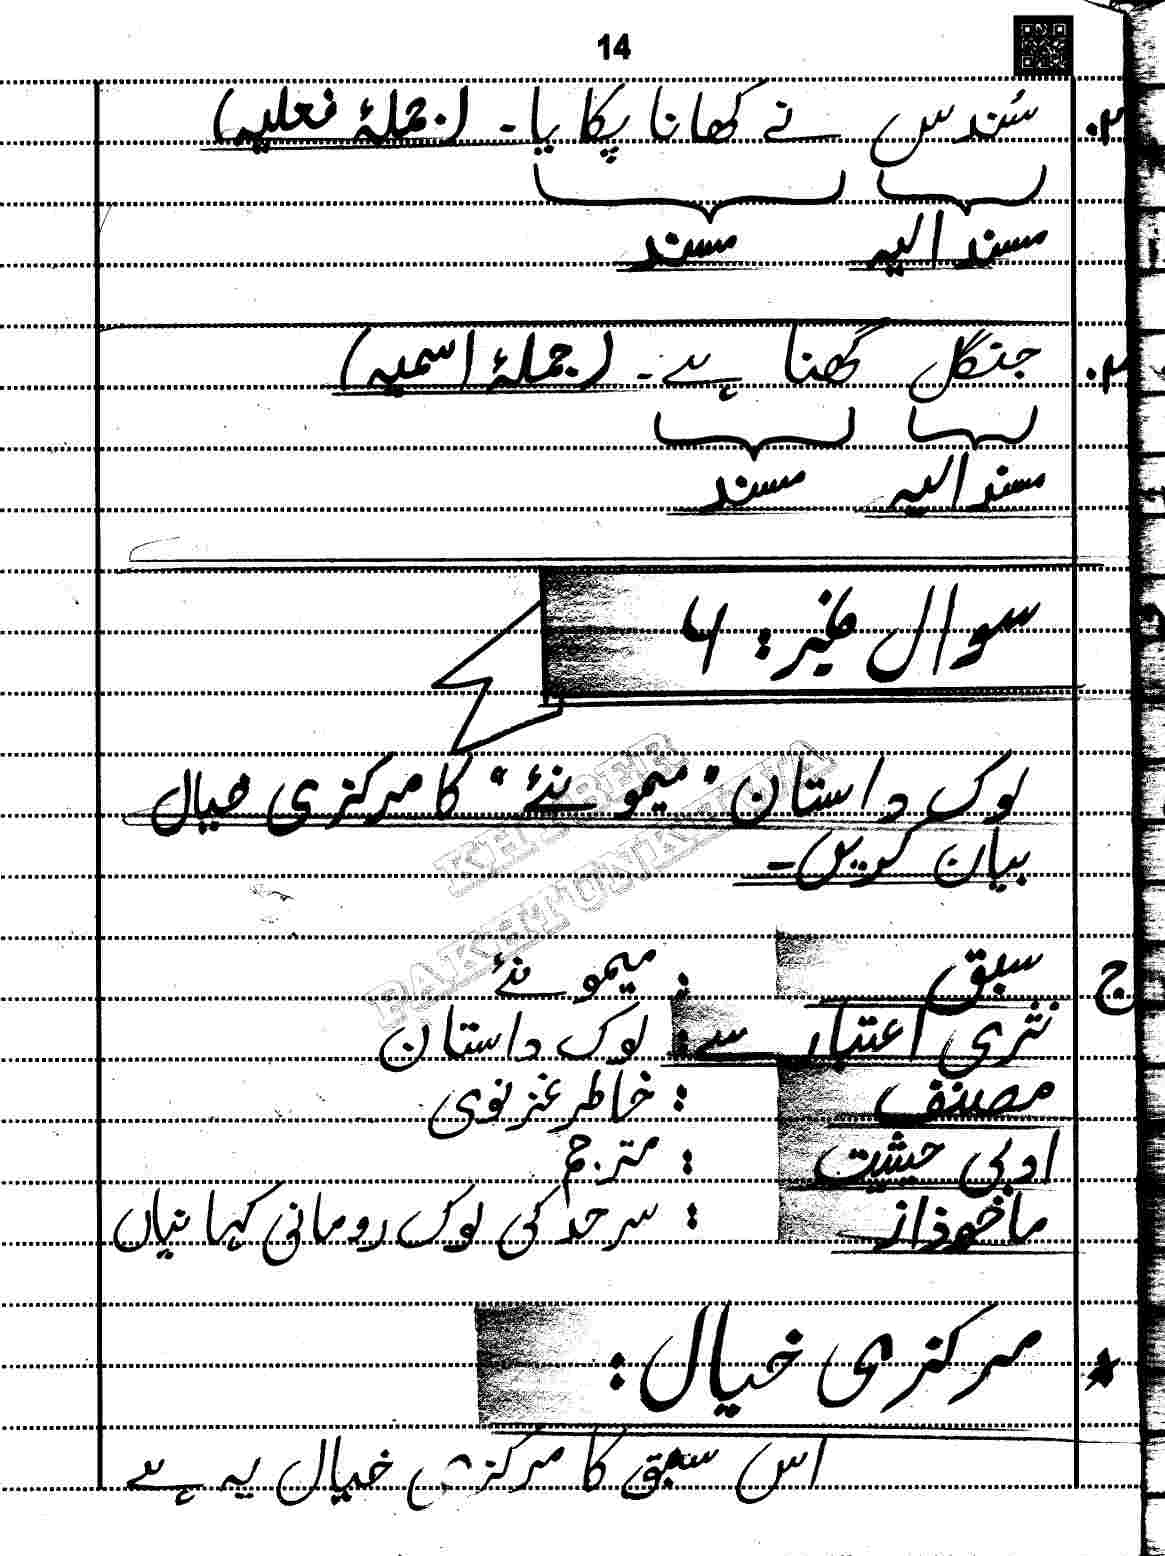 14
۳. سُندس نے کھانا پکایا۔ (جملۂ فعلیہ)
مسند الیہ مسند
۴. جنگل گھنا ہے۔ (جملۂ اسمیہ)
مسند الیہ مسند
سوال نمبر: ۶
لوک داستان "میمونئے" کا مرکزی خیال
بیان کریں۔
KHYBER
PAKHTUNKHWA
ج سبق : میمونئے
نثری اعتبار سے: لوک داستان
مصنف : خاطر غزنوی
ادبی حیثیت : مترجم
ماخوذ از : سرحد کی لوک رومانی کہانیاں
★ مرکزی خیال:
اس سبق کا مرکزی خیال یہ ہے